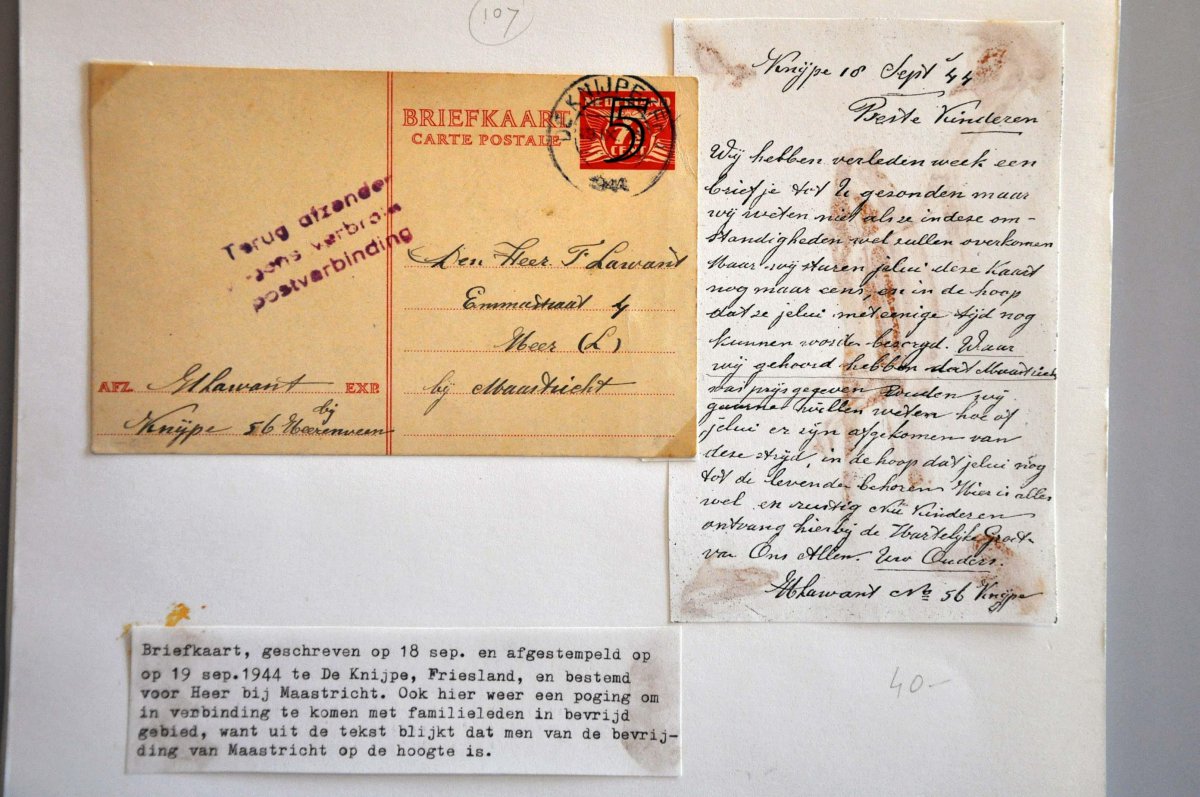 107
BRIEFKAART
CARTE POSTALE
DE KNIJPE
NEDERLAND
5
7½
CENT
1944
Terug afzender
verbroken
postverbinding
Den Heer F Lawant
Emmastraat 4
Heer (L)
bij Maastricht
AFZ. HLawant EXP.
bij
Knijpe 56 Heerenveen
Knijpe 18 Sept '44
Beste Kinderen
Wij hebben verleden week een
briefje tot U gezonden maar
wij weten niet als ze in deze om-
standigheden wel zullen overkomen
Maar wij sturen jelui deze Kaart
nog maar eens, en in de hoop
dat ze jelui met eenige tijd nog
kunnen worden bezorgd. Waar
wij gehoord hebben dat Maastricht
was prijsgegeven Zouden wij
gaarne willen weten hoe of
jelui er zijn afgekomen van
deze strijd, in de hoop dat jelui nog
tot de levenden behoren Hier is alles
wel en rustig Nu Kinderen
ontvang hierbij de Hartelijke Groet
van Ons Allen. Uw Ouders.
HLawant No 56 Knijpe
Briefkaart, geschreven op 18 sep. en afgestempeld op
op 19 sep.1944 te De Knijpe, Friesland, en bestemd
voor Heer bij Maastricht. Ook hier weer een poging om
in verbinding te komen met familieleden in bevrijd
gebied, want uit de tekst blijkt dat men van de bevrij-
ding van Maastricht op de hoogte is.
40.-